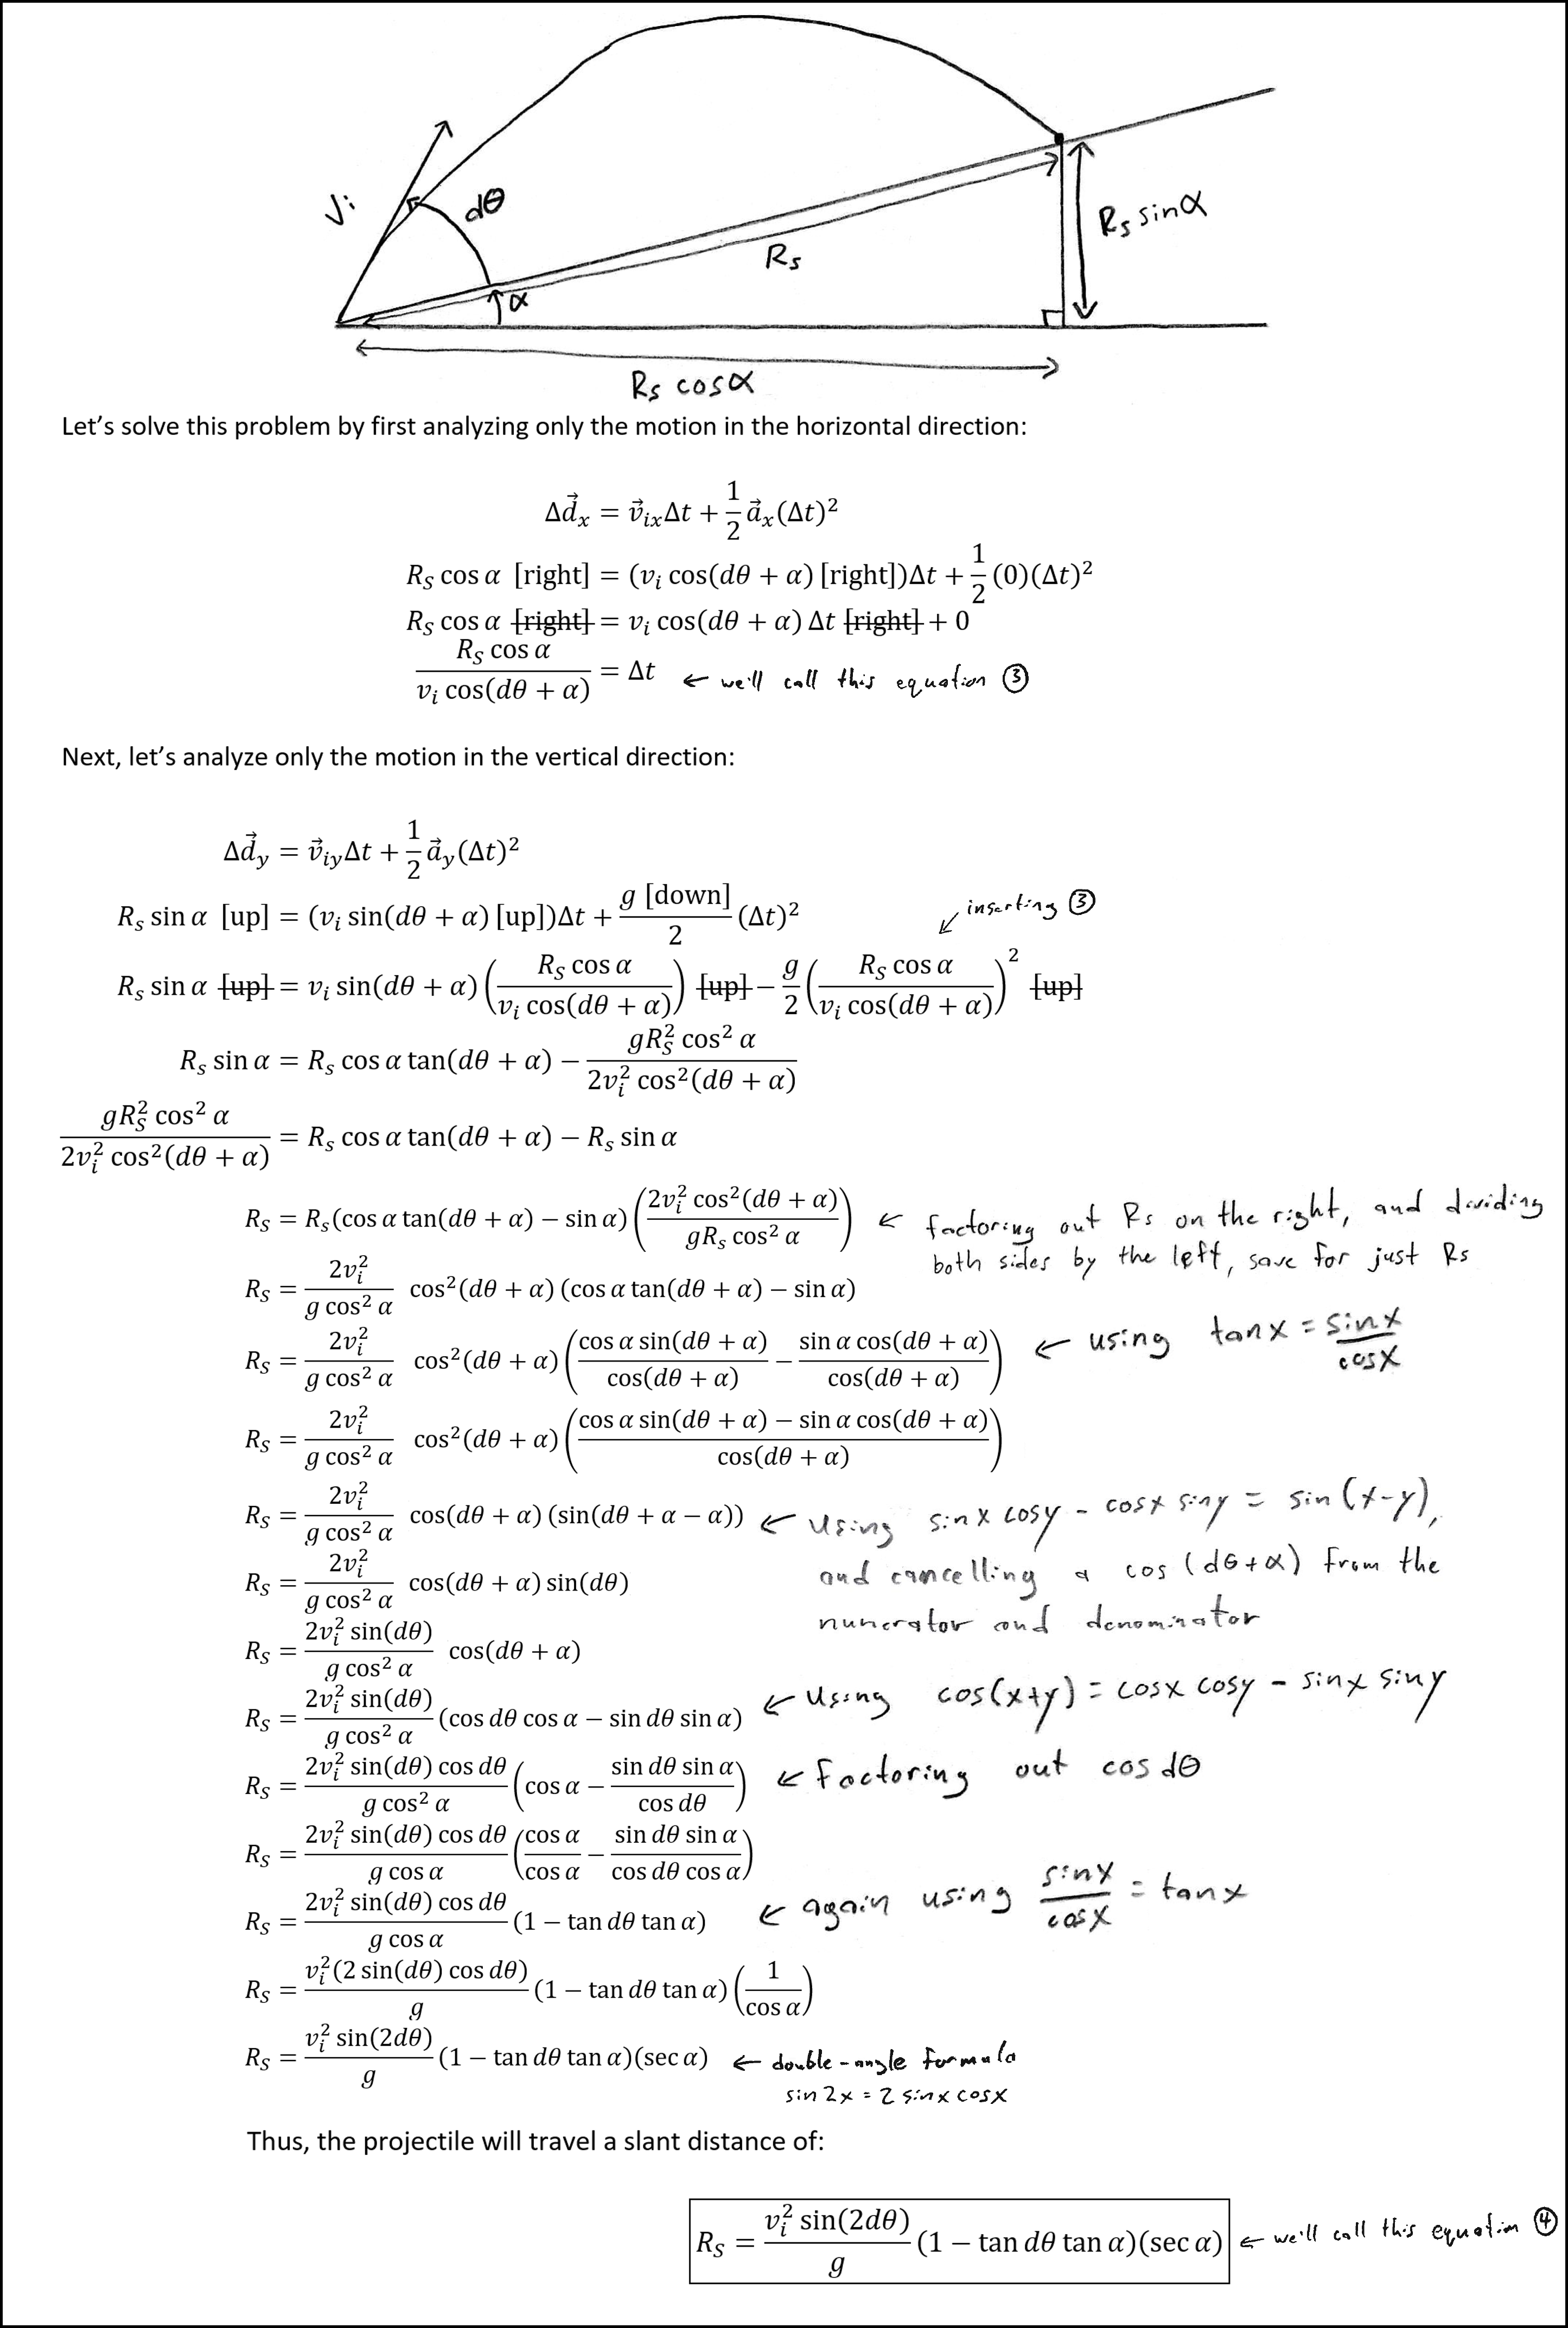 Vi
dθ
α
Rs
Rs sinα
Rs cosα
Let's solve this problem by first analyzing only the motion in the horizontal direction:
Δd⃗ₓ = v⃗ᵢₓΔt + 1/2 a⃗ₓ(Δt)²
R_S cos α [right] = (vᵢ cos(dθ + α) [right])Δt + 1/2 (0)(Δt)²
R_S cos α [right] = vᵢ cos(dθ + α) Δt [right] + 0
R_S cos α / vᵢ cos(dθ + α) = Δt ← we'll call this equation ③
Next, let's analyze only the motion in the vertical direction:
Δd⃗_y = v⃗_iyΔt + 1/2 a⃗_y(Δt)²
R_s sin α [up] = (vᵢ sin(dθ + α) [up])Δt + g [down]/2 (Δt)² ↙ inserting ③
R_s sin α [up] = vᵢ sin(dθ + α) (R_S cos α / vᵢ cos(dθ + α)) [up] − g/2 (R_S cos α / vᵢ cos(dθ + α))² [up]
R_s sin α = R_s cos α tan(dθ + α) − gR_S² cos² α / 2vᵢ² cos²(dθ + α)
gR_S² cos² α / 2vᵢ² cos²(dθ + α) = R_s cos α tan(dθ + α) − R_s sin α
R_S = R_s(cos α tan(dθ + α) − sin α) (2vᵢ² cos²(dθ + α) / gR_s cos² α) ← factoring out Rs on the right, and dividing
both sides by the left, save for just Rs
R_S = 2vᵢ² / g cos² α cos²(dθ + α) (cos α tan(dθ + α) − sin α)
R_S = 2vᵢ² / g cos² α cos²(dθ + α) (cos α sin(dθ + α) / cos(dθ + α) − sin α cos(dθ + α) / cos(dθ + α)) ← using tanx = sinx/cosx
R_S = 2vᵢ² / g cos² α cos²(dθ + α) (cos α sin(dθ + α) − sin α cos(dθ + α) / cos(dθ + α))
R_S = 2vᵢ² / g cos² α cos(dθ + α) (sin(dθ + α − α)) ← using sinx cosy - cosx siny = sin(x-y),
and cancelling a cos (dθ+α) from the
numerator and denominator
R_S = 2vᵢ² / g cos² α cos(dθ + α) sin(dθ)
R_S = 2vᵢ² sin(dθ) / g cos² α cos(dθ + α)
R_S = 2vᵢ² sin(dθ) / g cos² α (cos dθ cos α − sin dθ sin α) ← Using cos(x+y) = cosx cosy - sinx siny
R_S = 2vᵢ² sin(dθ) cos dθ / g cos² α (cos α − sin dθ sin α / cos dθ) ← Factoring out cos dθ
R_S = 2vᵢ² sin(dθ) cos dθ / g cos α (cos α / cos α − sin dθ sin α / cos dθ cos α)
R_S = 2vᵢ² sin(dθ) cos dθ / g cos α (1 − tan dθ tan α) ← again using sinx/cosx = tanx
R_S = vᵢ²(2 sin(dθ) cos dθ) / g (1 − tan dθ tan α) (1 / cos α)
R_S = vᵢ² sin(2dθ) / g (1 − tan dθ tan α)(sec α) ← double-angle formula
sin 2x = 2 sinx cosx
Thus, the projectile will travel a slant distance of:
R_S = vᵢ² sin(2dθ) / g (1 − tan dθ tan α)(sec α) ← we'll call this equation ④